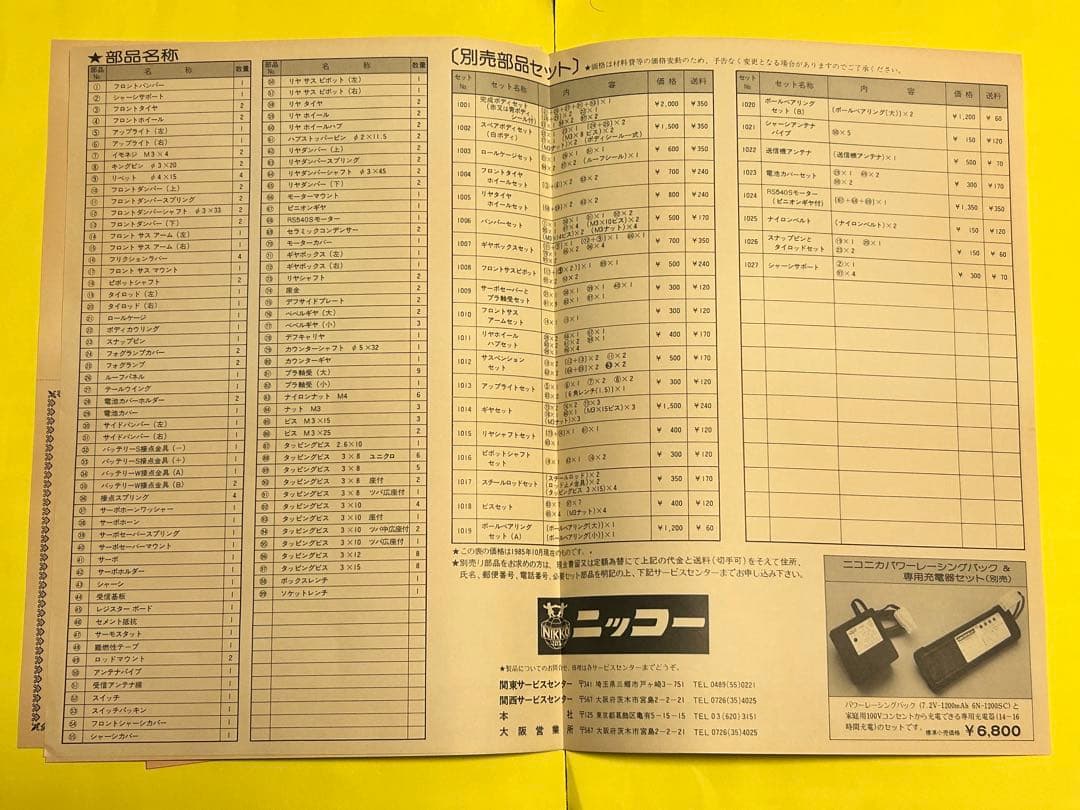 ★部品名称
部品No 名称 数量
① フロントバンパー 1
② シャーシサポート 1
③ フロントタイヤ 2
④ フロントホイール 2
⑤ アップライト(左) 1
⑥ アップライト(右) 1
⑦ イモネジ M3×4 2
⑧ キングピン φ3×20 2
⑨ リベット φ4×15 4
⑩ フロントダンパー(上) 2
⑪ フロントダンパースプリング 2
⑫ フロントダンパーシャフト φ3×33 2
⑬ フロントダンパー(下) 2
⑭ フロント サス アーム(左) 1
⑮ フロント サス アーム(右) 1
⑯ フリクションラバー 4
⑰ フロント サス マウント 1
⑱ ピボットシャフト 2
⑲ タイロッド(左) 1
⑳ タイロッド(右) 1
㉑ ロールケージ 1
㉒ ボディカウリング 1
㉓ スナップピン 1
㉔ フォグランプカバー 2
㉕ フォグランプ 2
㉖ ルーフパネル 1
㉗ テールウイング 1
㉘ 電池カバーホルダー 2
㉙ 電池カバー 1
㉚ サイドバンパー(左) 1
㉛ サイドバンパー(右) 1
㉜ バッテリーS接点金具(−) 1
㉝ バッテリーS接点金具(+) 1
㉞ バッテリーW接点金具(A) 1
㉟ バッテリーW接点金具(B) 2
㊱ 接点スプリング 4
㊲ サーボホーンワッシャー 1
㊳ サーボホーン 1
㊴ サーボセーバースプリング 1
㊵ サーボセーバーマウント 1
㊶ サーボ 1
㊷ サーボホルダー 1
㊸ シャーシ 1
㊹ 受信基板 1
㊺ レジスター ボード 1
㊻ セメント抵抗 1
㊼ サーモスタット 1
㊽ 難燃性テープ 1
㊾ ロッドマウント 2
㊿ アンテナパイプ 1
51 受信アンテナ線 1
52 スイッチ 1
53 スイッチパッキン 1
54 フロントシャーシカバー 1
55 シャーシカバー 1
56 リヤ サス ピボット(左) 1
57 リヤ サス ピボット(右) 1
58 リヤ タイヤ 2
59 リヤ ホイール 2
60 リヤ ホイール ハブ 2
61 ハブストッパーピン φ2×11.5 2
62 リヤダンパー(上) 2
63 リヤダンパースプリング 2
64 リヤダンパーシャフト φ3×45 2
65 リヤダンパー(下) 2
66 モーターマウント 1
67 ピニオンギヤ 1
68 RS540Sモーター 1
69 セラミックコンデンサー 1
70 モーターカバー 1
71 ギヤボックス(左) 1
72 ギヤボックス(右) 1
73 リヤシャフト 2
74 座金 2
75 デフサイドプレート 2
76 ベベルギヤ(大) 2
77 ベベルギヤ(小) 3
78 デフキャリヤ 1
79 カウンターシャフト φ5×32 1
80 カウンターギヤ 1
81 プラ軸受(大) 9
82 プラ軸受(小) 1
83 ナイロンナット M4 6
84 ナット M3 3
85 ビス M3×15 3
86 ビス M3×25 2
87 タッピングビス 2.6×10 1
88 タッピングビス 3×8 ユニクロ 6
89 タッピングビス 3×8 5
90 タッピングビス 3×8 座付 2
91 タッピングビス 3×8 ツバ広座付 1
92 タッピングビス 3×10 4
93 タッピングビス 3×10 座付 1
94 タッピングビス 3×10 ツバ中広座付 2
95 タッピングビス 3×10 ツバ広座付 1
96 タッピングビス 3×12 8
97 タッピングビス 3×15 8
98 ボックスレンチ 1
99 ソケットレンチ 1
〔別売部品セット〕★価格は材料費等の価格変動のため、予告なく変更となる場合がありますのでご了承ください。
セットNo セット名称 内容 価格 送料
1001 完成ボディセット(赤又は青ボディ、シール付) ¥2,000 ¥350
1002 スペアボディセット(白ボディ) (ボディシール一式) ¥1,500 ¥350
1003 ロールケージセット (ルーフシール)×1 ¥600 ¥350
1004 フロントタイヤホイールセット ¥700 ¥240
1005 リヤタイヤホイールセット ¥800 ¥240
1006 バンパーセット ¥500 ¥170
1007 ギヤボックスセット ¥700 ¥350
1008 フロントサスピボット ¥500 ¥240
1009 サーボセーバーとプラ軸受セット ¥300 ¥120
1010 フロントサスアームセット ¥300 ¥120
1011 リヤホイールハブセット ¥400 ¥170
1012 サスペンションセット ¥500 ¥170
1013 アップライトセット (6角レンチ(1.5))×1 ¥300 ¥120
1014 ギヤセット (M3×15ビス)×3 (M3ナット)×3 ¥1,500 ¥240
1015 リヤシャフトセット ¥400 ¥120
1016 ピボットシャフトセット ¥300 ¥120
1017 スチールロッドセット (スチールロッド)×2 (ロッド止メ金具)×2 (タッピングビス 3×15)×4 ¥350 ¥170
1018 ビスセット (M3ナット)×4 ¥400 ¥120
1019 ボールベアリングセット(A) (ボールベアリング(大))×1 (ボールベアリング(小))×1 ¥1,200 ¥60
セットNo セット名称 内容 価格 送料
1020 ボールベアリングセット(B) (ボールベアリング(大))×2 ¥1,200 ¥60
1021 シャーシアンテナパイプ ㊿×5 ¥150 ¥120
1022 送信機アンテナ (送信機アンテナ)×1 ¥500 ¥70
1023 電池カバーセット ¥300 ¥170
1024 RS540Sモーター(ピニオンギヤ付) ¥1,350 ¥350
1025 ナイロンベルト (ナイロンベルト)×2 ¥150 ¥120
1026 スナップピンとタイロッドセット ¥150 ¥60
1027 シャーシサポート ¥300 ¥70
★この表の価格は1985年10月現在のものです。
★別売り部品をお求めの方は、現金書留又は定額為替にて上記の代金と送料(切手可)をそえて住所、
氏名、郵便番号、電話番号、必要セット部品を明記の上、下記サービスセンターまでお申し込み下さい。
NIKKO ニッコー
★製品についてのお問合せ、修理は各サービスセンターまでどうぞ。
関東サービスセンター 〒341 埼玉県三郷市戸ヶ崎3-751 TEL 0489(55)0221
関西サービスセンター 〒567 大阪府茨木市宮島2-2-21 TEL 0726(35)4025
本社 〒125 東京都葛飾区亀有5-15-15 TEL 03(620)3151
大阪営業所 〒567 大阪府茨木市宮島2-2-21 TEL 0726(35)4025
ニコニカパワーレーシングパック &
専用充電器セット(別売)
パワーレーシングパック(7.2V-1200mAh 6N-1200SC)と
家庭用100Vコンセントから充電できる専用充電器(14~16
時間充電)のセットです。 標準小売価格 ¥6,800